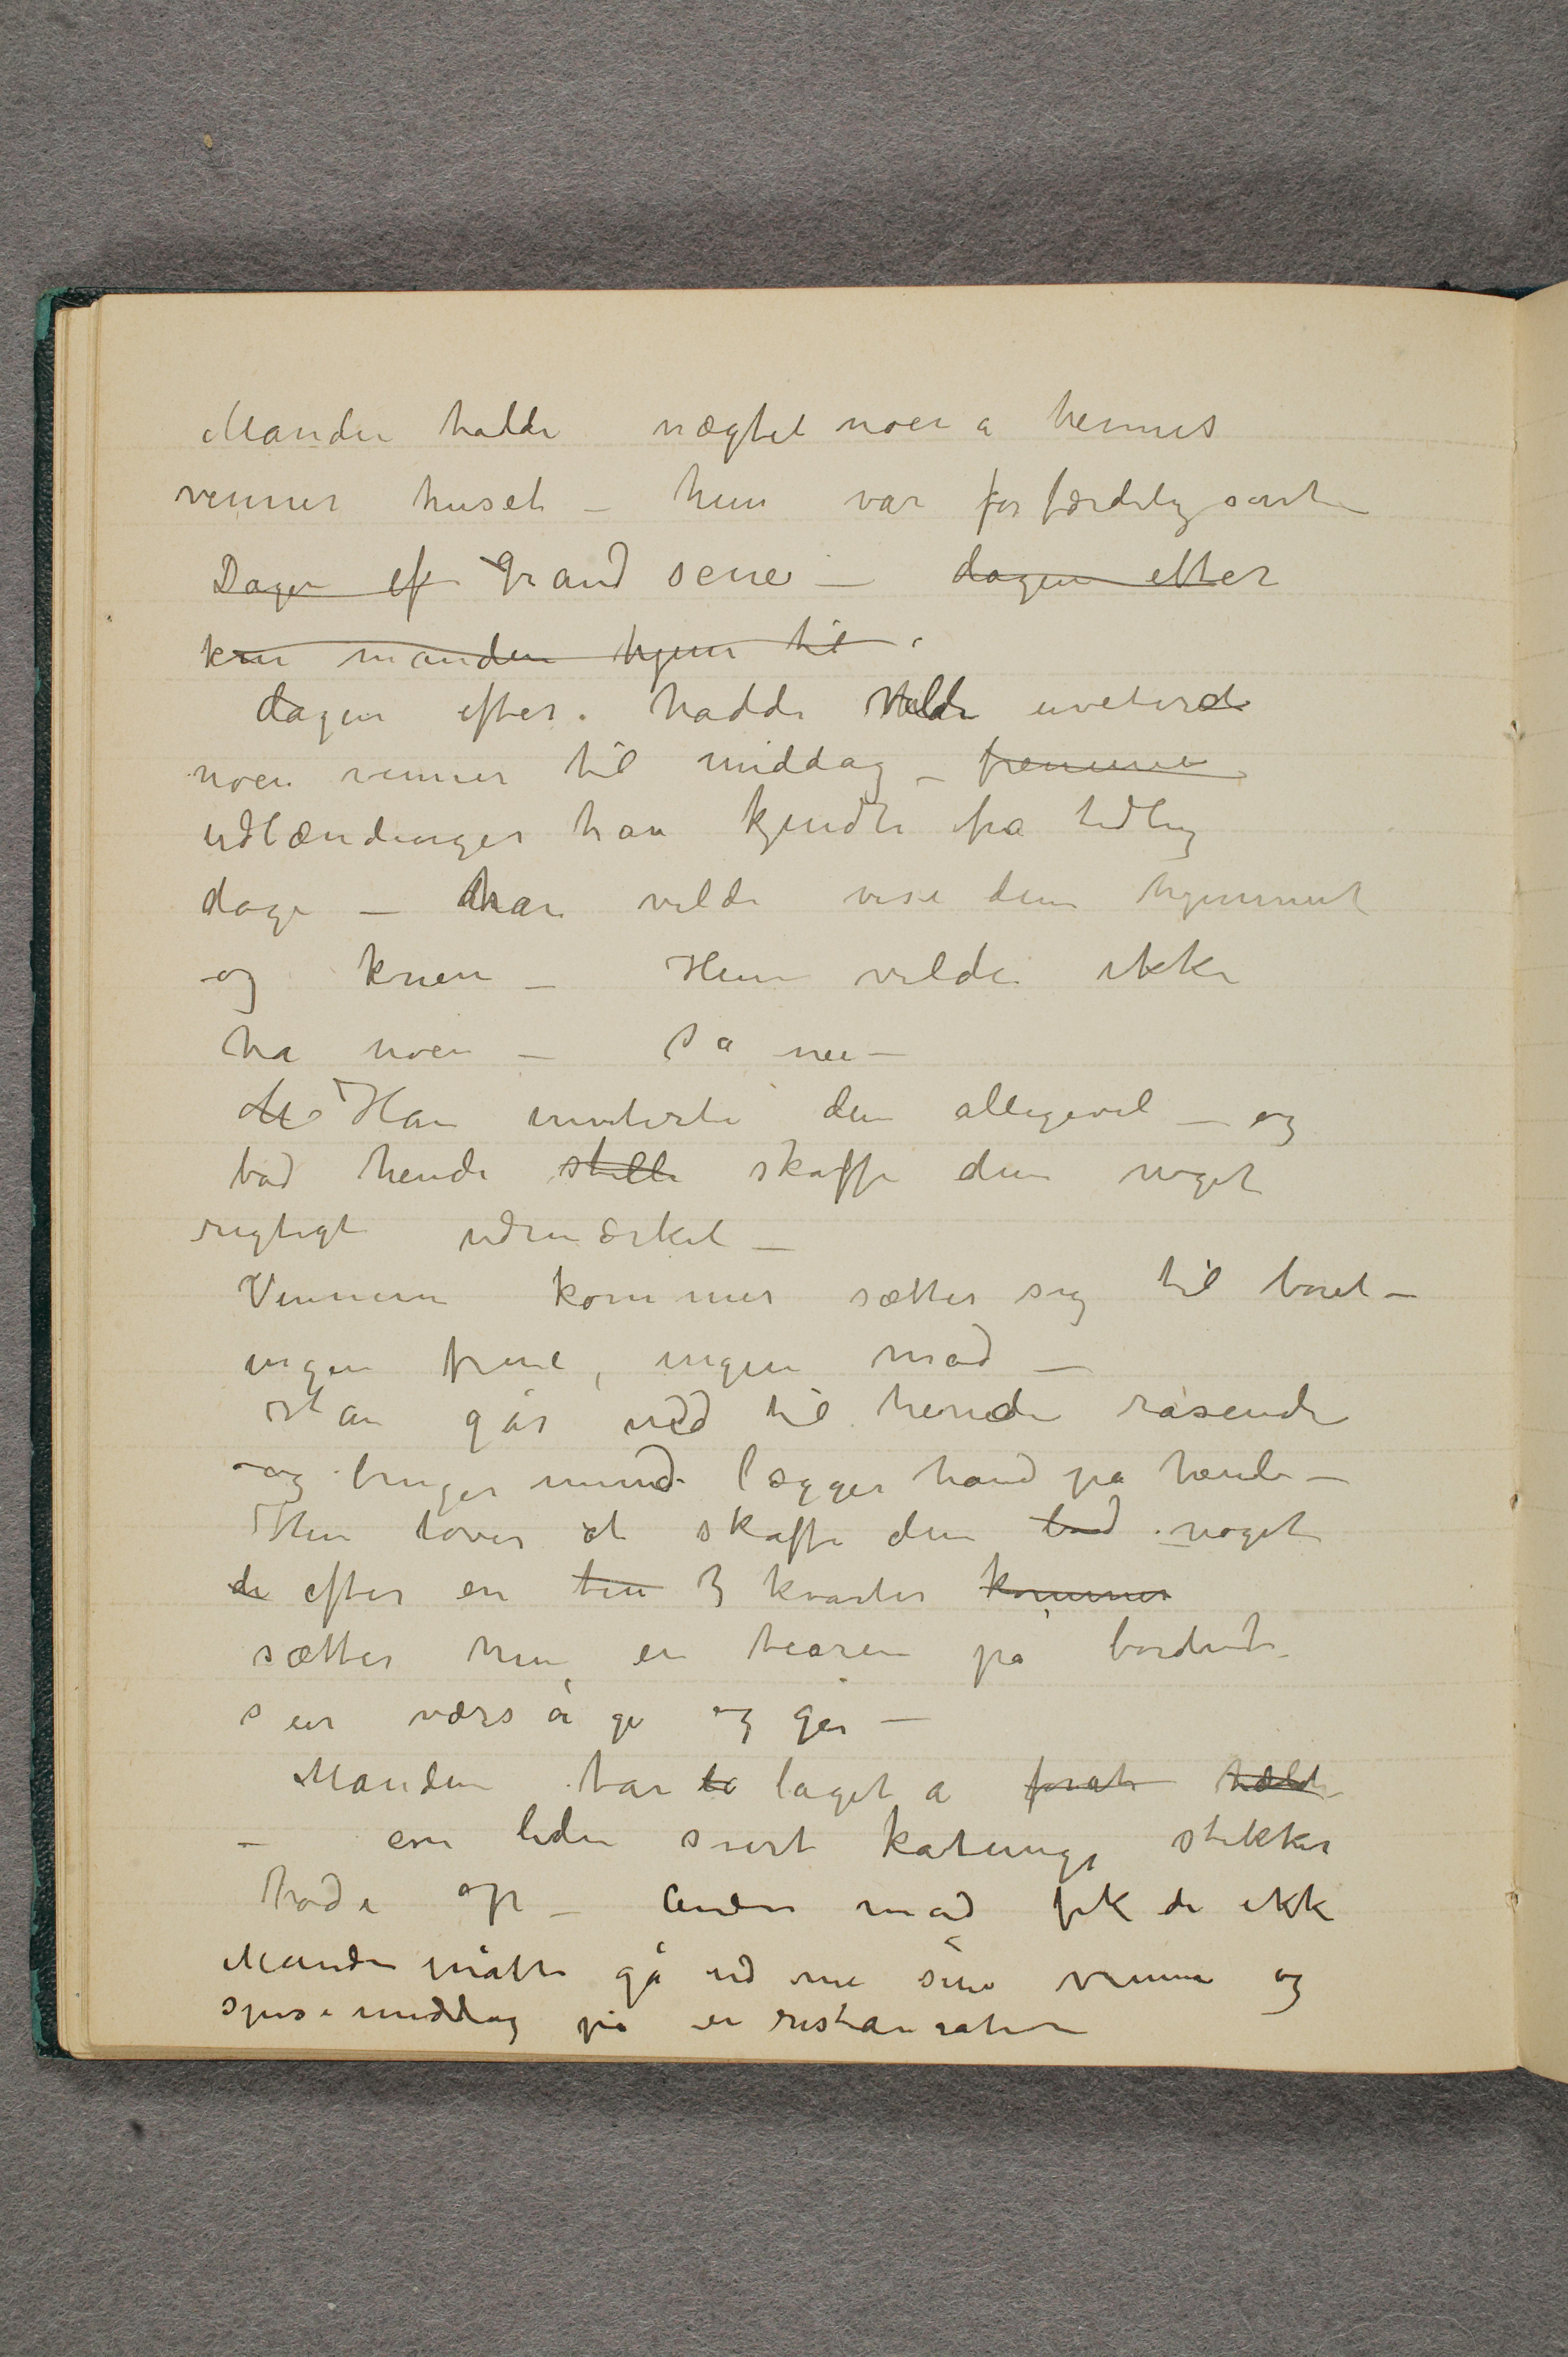 Manden hadde nægtet noen a hennes
venner huset – hun var forfærdelig sint
Dagen ef Grand sene – dagen etter
kom manden hjem til
dagen efter. hadde vilde inviteret
noen venner til middag – fremme
udlændinger han kjendte fra tidlig
dage – han vilde vise dem hjemmet
og konen – Hun vilde ikke
ha noen – Så nei –
Han inviterte dem alligevel – og
bad hende stille skaffe dem noget
rigtigt udmærket –
Vennene kommer sætter sig til boret –
ingen frue, ingen mad –
Han går ned til hende rasende
og bruger mund lægger hånd på hende –
Hun lover at skaffe dem bad noget
de efter en tim 3 kvarter kommer
sætter hun en terrin på bordet
sier værså ge og går –
Manden tar lå låget a forat
– en liden svart katunge stikker
hode op – Anden mad fik de ikke
Manden måtte gå ud me sine venner og
spise middag på en restauration